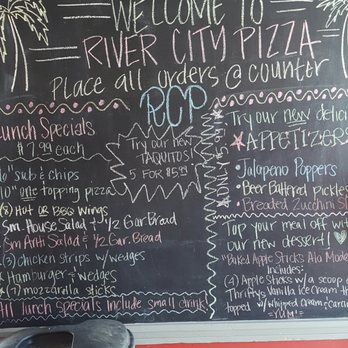 WELCOME TO
RIVER CITY PIZZA
Place all orders @ counter
RCP
Lunch Specials
$7.99 each
sub & chips
10" one topping pizza
(8) Hot or BBQ Wings
Sm. House Salad & 1/2 Gar. Bread
Sm Anti Salad & 1/2 Gar. Bread
(3) chicken strips w/ wedges
Hamburger & wedges
(7) mozzarella sticks
All lunch specials include small drink!
Try our new
TAQUITOS!
5 FOR $5.99
Try our new delici
APPETIZERS
Jalapeno Poppers
Beer Battered pickles
Breaded Zucchini S
Top your meal off with
our new dessert!
"Baked Apple Sticks Ala Mode
Includes:
(4) Apple Sticks w/ a scoop o
Thriftys Vanilla Ice Cream th
topped w/ whipped cream & caram
=YUM=